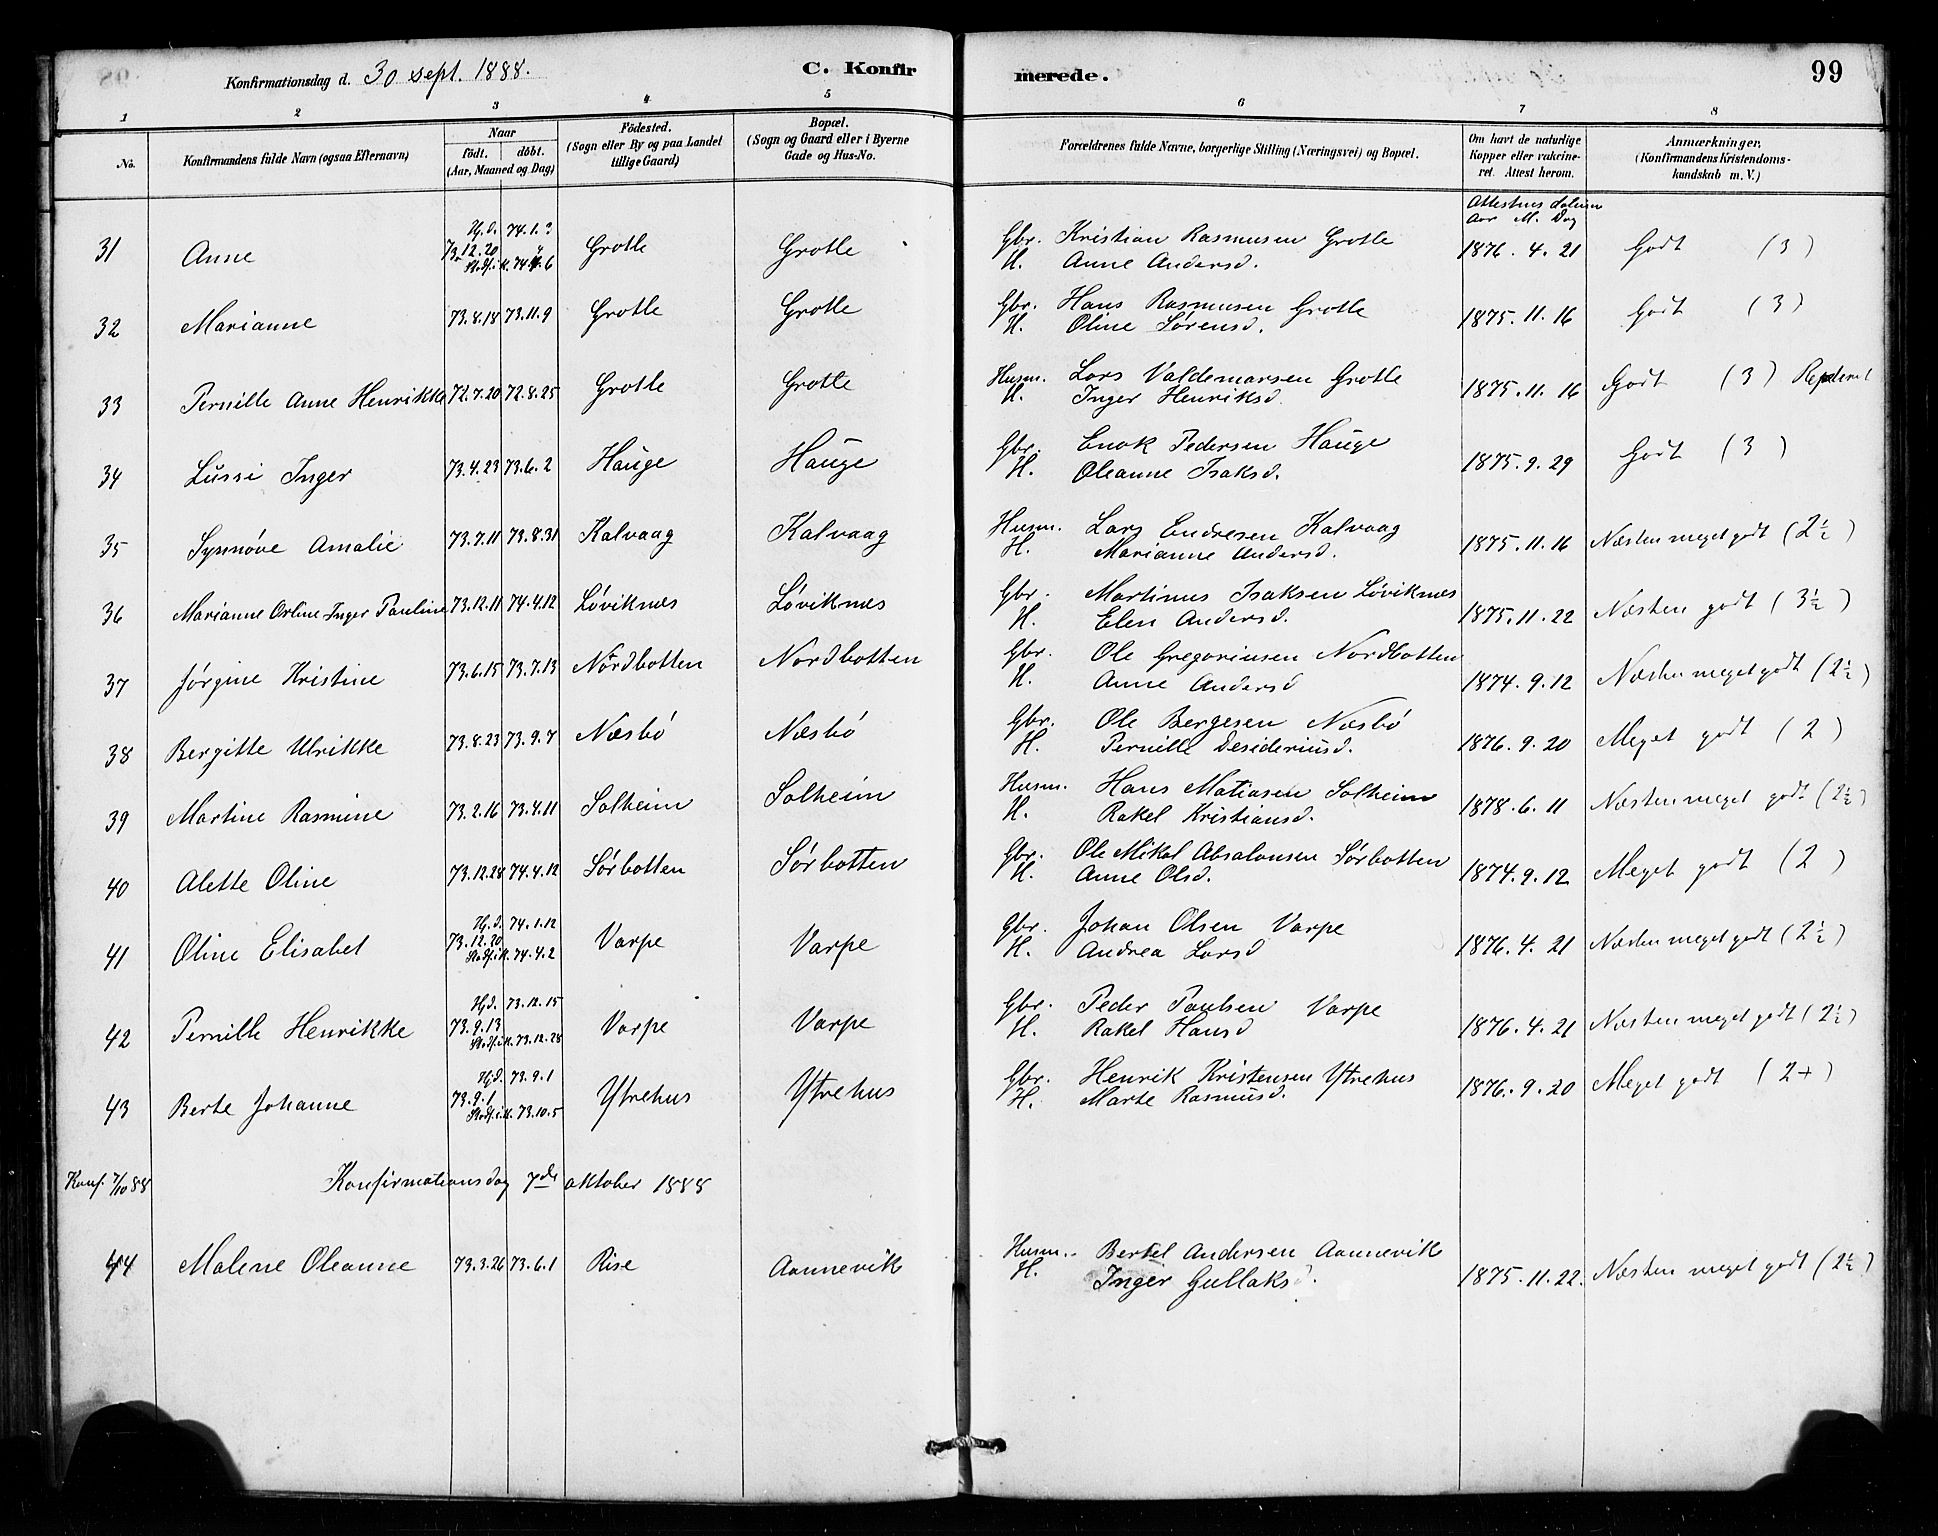 Konfirmationsdag d. 30 sept. 1888. C. Konfir merede. 99
1 2 3 4 5 6 7 8
No. Konfirmandens fulde Navn (ogsaa Efternavn) Naar født. døbt. (Aar, Maaned og Dag) Födested. (Sogn eller By og paa Landet tillige Gaard) Bopæl. (Sogn og Gaard eller i Byerne Gade og Hus-No. Forældrenes fulde Navne, borgerlige Stilling (Næringsvei) og Bopæl. Om havt de naturlige Kopper eller vakcineret. Attest herom. Anmærkninger, (Konfirmandens Kristendomskundskab m. V.)
Attestens datum
Aar M. Dag
Hj.d. 74.1.?
31 Anne 73.12.20 Grotle Grotle Gbr. Kristian Rasmusen Grotle 1876.4.21 Godt (3)
H. Anne Andersd.
32 Marianne 73.8.18 73.11.9 Grotle Grotle Gbr. Hans Rasmusen Grotle 1875.11.16 Godt (3)
H. Oline Sørensd.
33 Pernille Anne Henrikke 72.7.20 72.8.25 Grotle Grotle Husm. Lars Valdemarsen Grotle 1875.11.16 Godt (3)
H. Inger Henriksd.
34 Lussi Inger 73.4.23 73.6.2 Hauge Hauge Gbr. Enok Pedersen Hauge 1875.9.29 Godt (3)
H. Oleanne Isaksd.
35 Synnøve Amalie 73.7.11 73.8.31 Kalvaag Kalvaag Husm. Lars Endresen Kalvaag 1875.11.16 Næsten meget godt (2½)
H. Marianne Andersd.
36 Marianne Orline Inger Pauline 73.12.11 74.4.12 Løviknæs Løviknæs Gbr. Martinus Isaksen Løviknæs 1875.11.22 Næsten godt (3½)
H. Elen Andersd.
37 Jørgine Kristine 73.6.15 73.7.13 Nordbotten Nordbotten Gbr. Ole Gregoriusen Nordbotten 1874.9.12 Næsten meget godt (2½)
H. Anne Andersd
38 Bergitte Ulrikke 73.8.23 73.9.7 Næsbö Næsbö Gbr. Ole Bergesen Næsbö 1876.9.20 Meget godt (2)
H. Pernille Desideriusd.
39 Martine Rasmine 73.2.16 73.4.11 Solheim Solheim Husm. Hans Matiasen Solheim 1878.6.11 Næsten meget godt (2½)
H. Rakel Kristiansd.
40 Alette Oline 73.12.28 74.4.12 Sørbotten Sørbotten Gbr. Ole Mikal Absalonsen Sørbotten 1874.9.12 Meget godt (2)
H. Anne Olsd.
Hj.d. 74.1.12
41 Oline Elisabet 73.12.20 Varpe Varpe Gbr. Johan Olsen Varpe 1876.4.21 Næsten meget godt (2½)
Stadf. i K. 74.4.2 H. Andrea Larsd
Hj.d. 73.12.15
42 Pernille Henrikke 73.9.13 Varpe Varpe Gbr. Peder Paulsen Varpe 1876.4.21 Næsten meget godt (2½)
Stadf. i K. 73.12.28 H. Rakel Hansd
Hj.d. 73.9.1
43 Berte Johanne 73.9.1 Ytrehus Ytrehus Gbr. Henrik Kristensen Ytrehus 1876.9.20 Meget godt (2+)
Stadf. i K. 73.10.5 H. Marte Rasmusd.
Konf. 7/10 88 Konfirmationsdag 7de oktober 1888
44 Malene Oleanne 73.3.26 73.6.1 Rise Aannevik Husm. Bertel Andersen Aannevik 1875.11.22. Næsten meget godt (2½)
H. Inger Gullaksd.